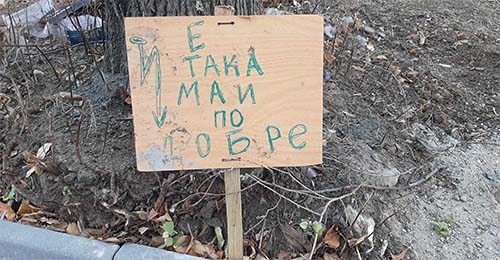 И Е
ТАКА
МАИ
ПО
ДОБРЕ